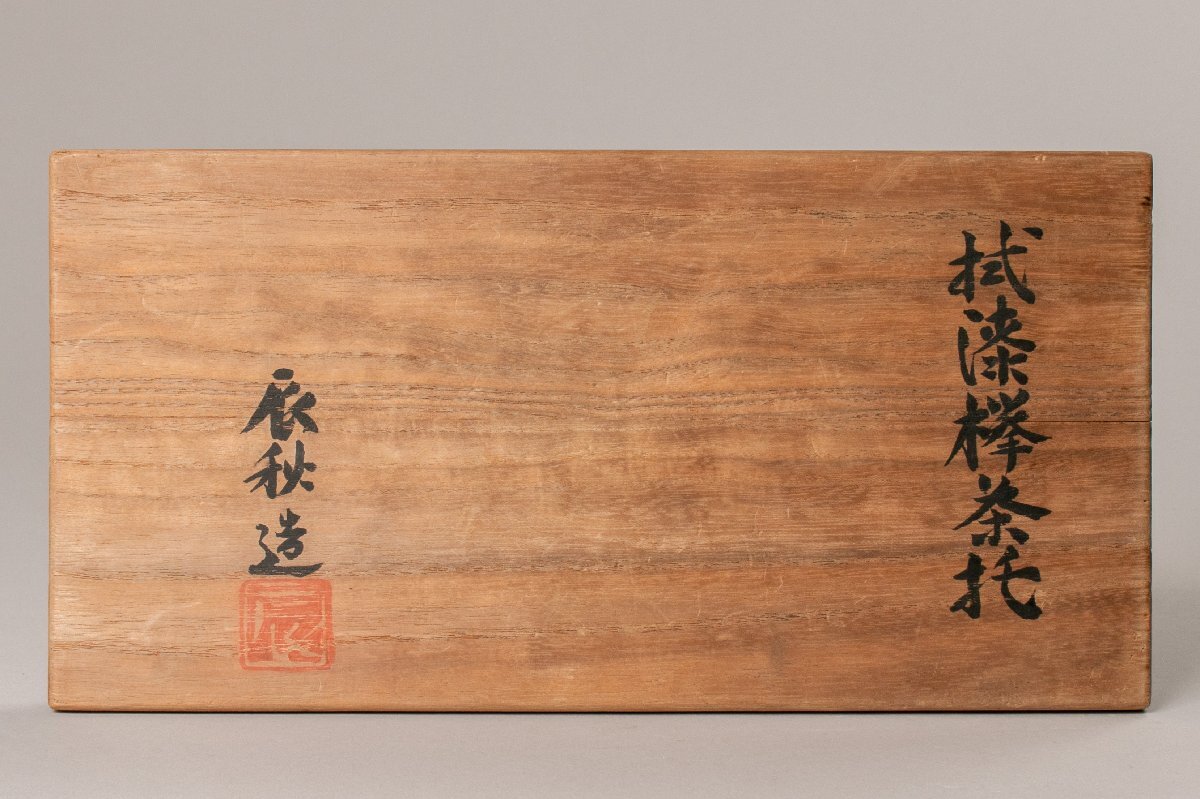 拭漆欅茶托
辰秋造
辰